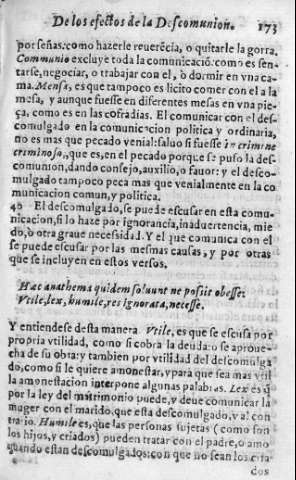 De los efectos de la Descomunion. 173
por señas: como hazerle reuerẽcia, o quitarle la gorra.
Communio excluye toda la comunicació: como es sen-
tarse, negociar, o trabajar con el, ò dormir en vna ca-
ma. Mensa, es que tampoco es licito comer con el a la
mesa, y aunque fuesse en diferentes mesas en vna pie-
ça, como es en las cofradias. El comunicar con el des-
comulgado en la comunicacion politica y ordinaria,
no es mas que pecado venial: saluo si fuesse in crimine
criminoso, que es, en el pecado porque se puso la des-
comunion, dando consejo, auxilio, o fauor: y el desco-
mulgado tampoco peca mas que venialmente en la co
municacion comun, y politica.
40 El descomulgado, se puede escusar en esta comu-
nicacion, si lo haze por ignorancia, inaduertencia, mie
do, ò otra graue necessidad. Y el que comunica con el
se puede escusar por las mesmas causas, y por otras
que se incluyen en estos versos.
Hæc anathema quidem soluunt ne possit obesse:
Vtile, lex, humile, res ignorata, necesse.
Y entiendese desta manera Vtile, es que se escusa por
propria vtilidad, como si cobra la deuda: o se aproue-
cha de su obra: y tambien por vtilidad del descomulga
do, como si le quiere amonestar, y para que sea mas vtil
la amonestacion interpone algunas palabras. Lex es q̃
por la ley del matrimonio puede, y deue comunicar la
muger con el marido, que esta descomulgado, y al con
trario. Humile es, que las personas sujetas (como son
los hijos, y criados) pueden tratar con el padre, o amo
quando estan descomulgados: con que no sean los cria-
dos